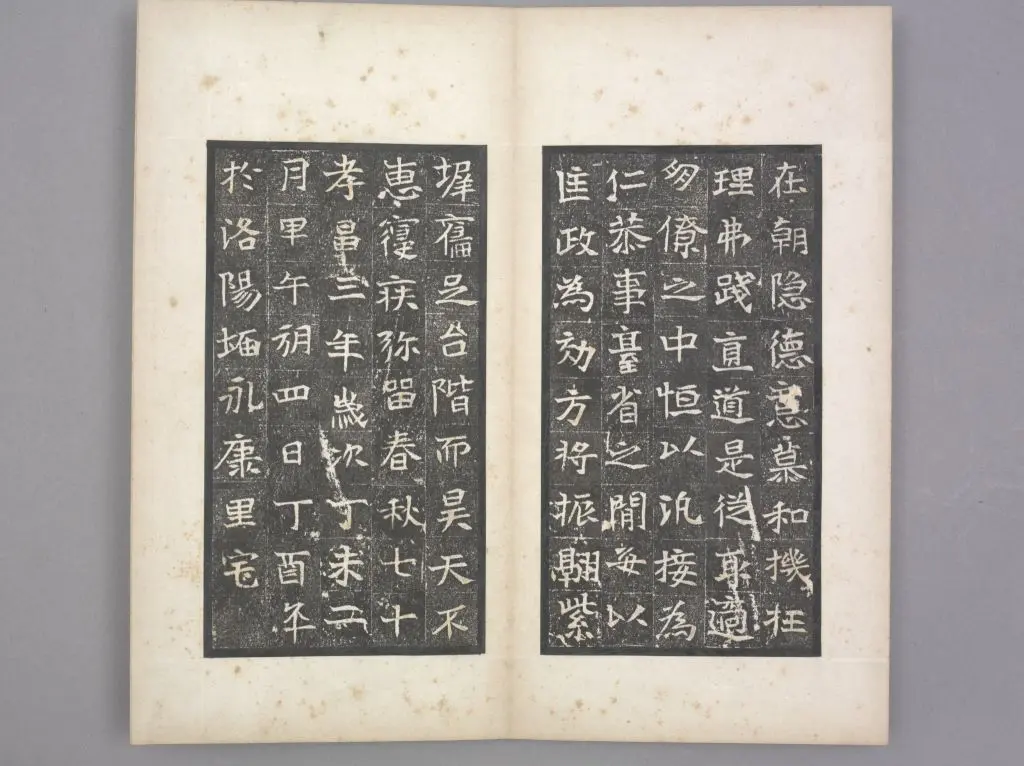 在朝隐德意慕和機枉
理弗踐直道是從取適
僚之中恒以汎接為
仁恭事臺省之間每以
匡政為効方將振翮紫
墀奮足台階而昊天不
惠寢疾弥留春秋七十
孝昌三年歲次丁未二
月甲午朔四日丁酉卒
於洛陽永康里宅